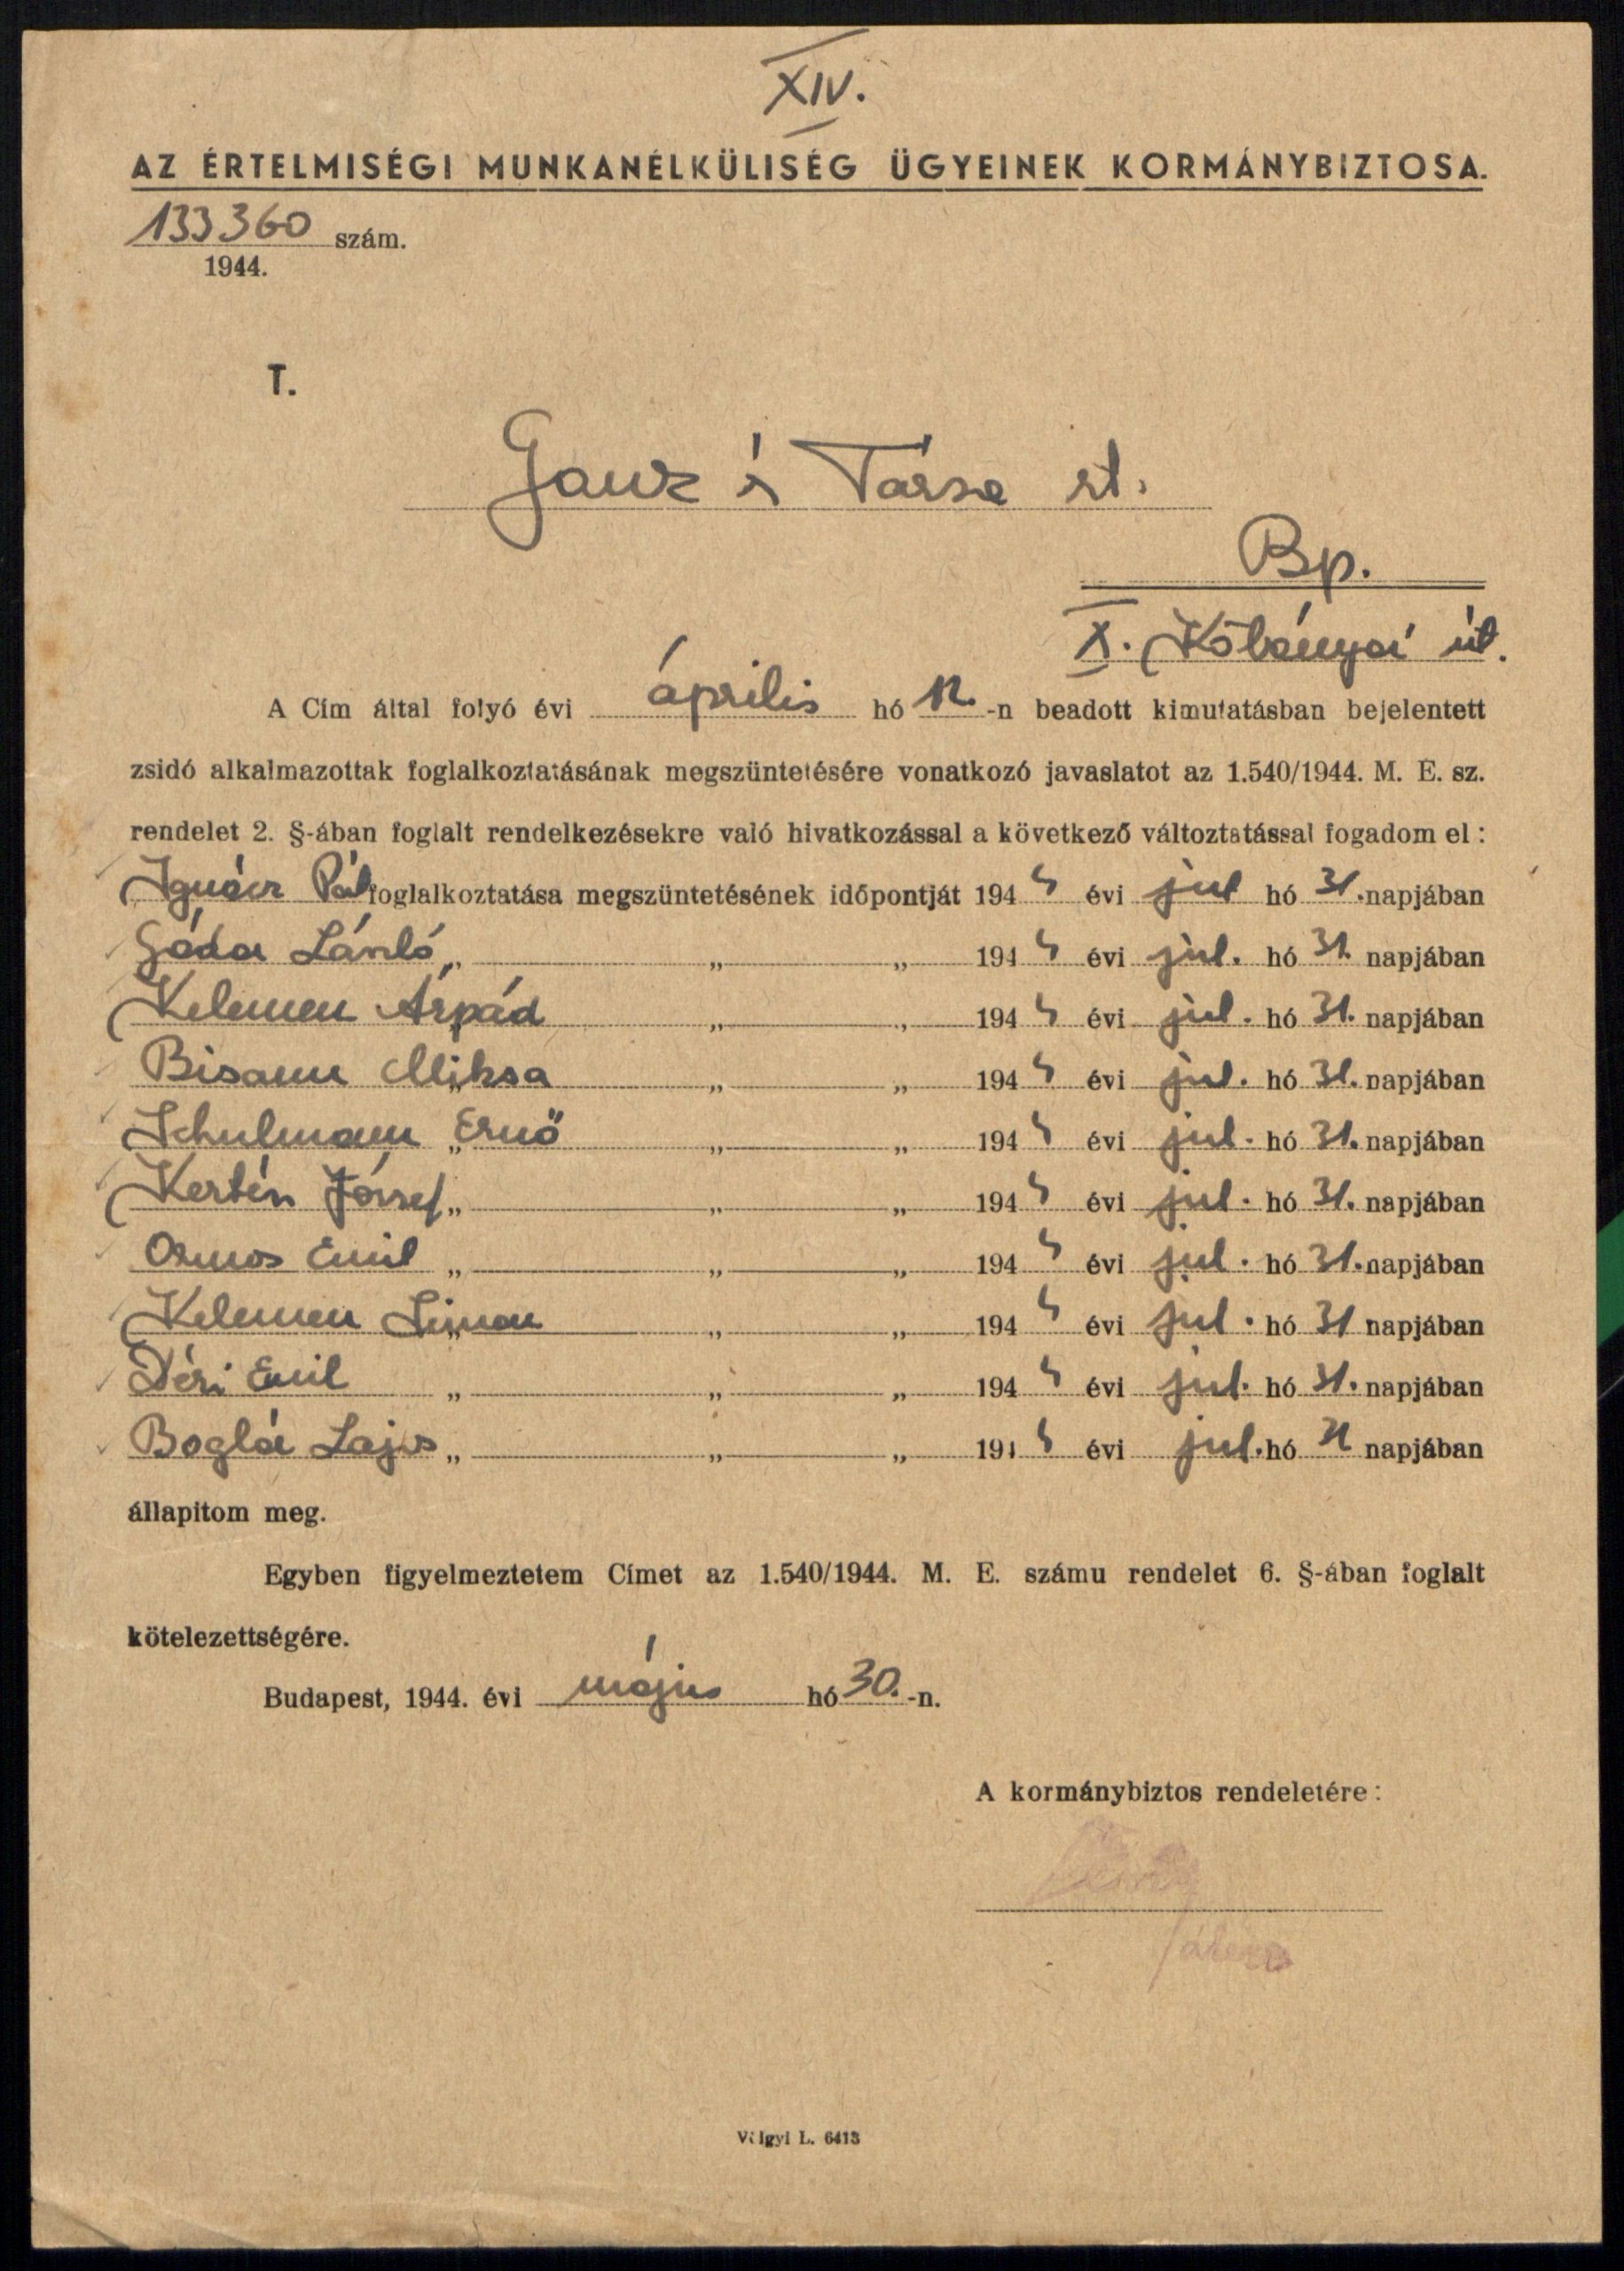 XIV.
AZ ÉRTELMISÉGI MUNKANÉLKÜLISÉG ÜGYEINEK KORMÁNYBIZTOSA.
133360 szám.
1944.
T.
Ganz és Társa rt.
Bp.
X. Kőbányai út.
A Cím által folyó évi április hó 12.-n beadott kimutatásban bejelentett
zsidó alkalmazottak foglalkoztatásának megszüntetésére vonatkozó javaslatot az 1.540/1944. M. E. sz.
rendelet 2. §-ában foglalt rendelkezésekre való hivatkozással a következő változtatással fogadom el:
Ignácz Pál foglalkoztatása megszüntetésének időpontját 1944 évi jul hó 31. napjában
Gádor László „ „ „ 1944 évi jul. hó 31. napjában
Kelemen Árpád „ „ 1944 évi jul. hó 31. napjában
Bisamu Miksa „ „ „ 1944 évi jul. hó 31. napjában
Schulmann Ernő „ „ „ 1944 évi jul. hó 31. napjában
Kertész József „ „ „ 1944 évi jul. hó 31. napjában
Ormos Emil „ „ „ 1944 évi jul. hó 31. napjában
Kelemen Simon „ „ „ 1944 évi jul. hó 31 napjában
Déri Emil „ „ „ 1944 évi jul. hó 31. napjában
Boglár Lajos „ „ „ 1944 évi jul. hó 31 napjában
állapitom meg.
Egyben figyelmeztetem Címet az 1.540/1944. M. E. számu rendelet 6. §-ában foglalt
kötelezettségére.
Budapest, 1944. évi május hó 30.-n.
A kormánybiztos rendeletére:
Völgyi L. 6413